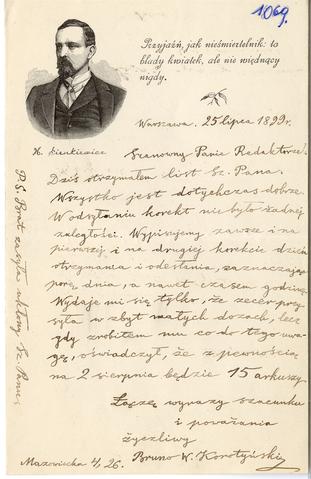 1069.
Przyjaźń, jak nieśmiertelnik: to
blady kwiatek, ale nie więdnący
nigdy.
Warszawa. 25 lipca 1899 r.
H. Sienkiewicz
Szanowny Panie Redaktorze!
Dziś otrzymałem list Sz. Pana.
Wszystko jest dotychczas dobrze.
W odczytaniu korekt nie było żadnej
zaległości. Wypisujemy zawsze i na
pierwszej, i na drugiej korekcie dzień
otrzymania i odesłania, zaznaczając
porę, dnia, a nawet czasem godzinę.
Wydaje mi się tylko, że zecer przy-
syła w zbyt małych dozach, lecz
gdy zrobiłem mu co do tego uwa-
gę, oświadczył, że z pewnością
na 2 sierpnia będzie 15 arkuszy.
Łączę wyrazy szacunku
i poważania
życzliwy
Bruno W. Korotyński
Mazowiecka 4, 26.
P.S. Brat zasyła ukłony Sz. Panu.